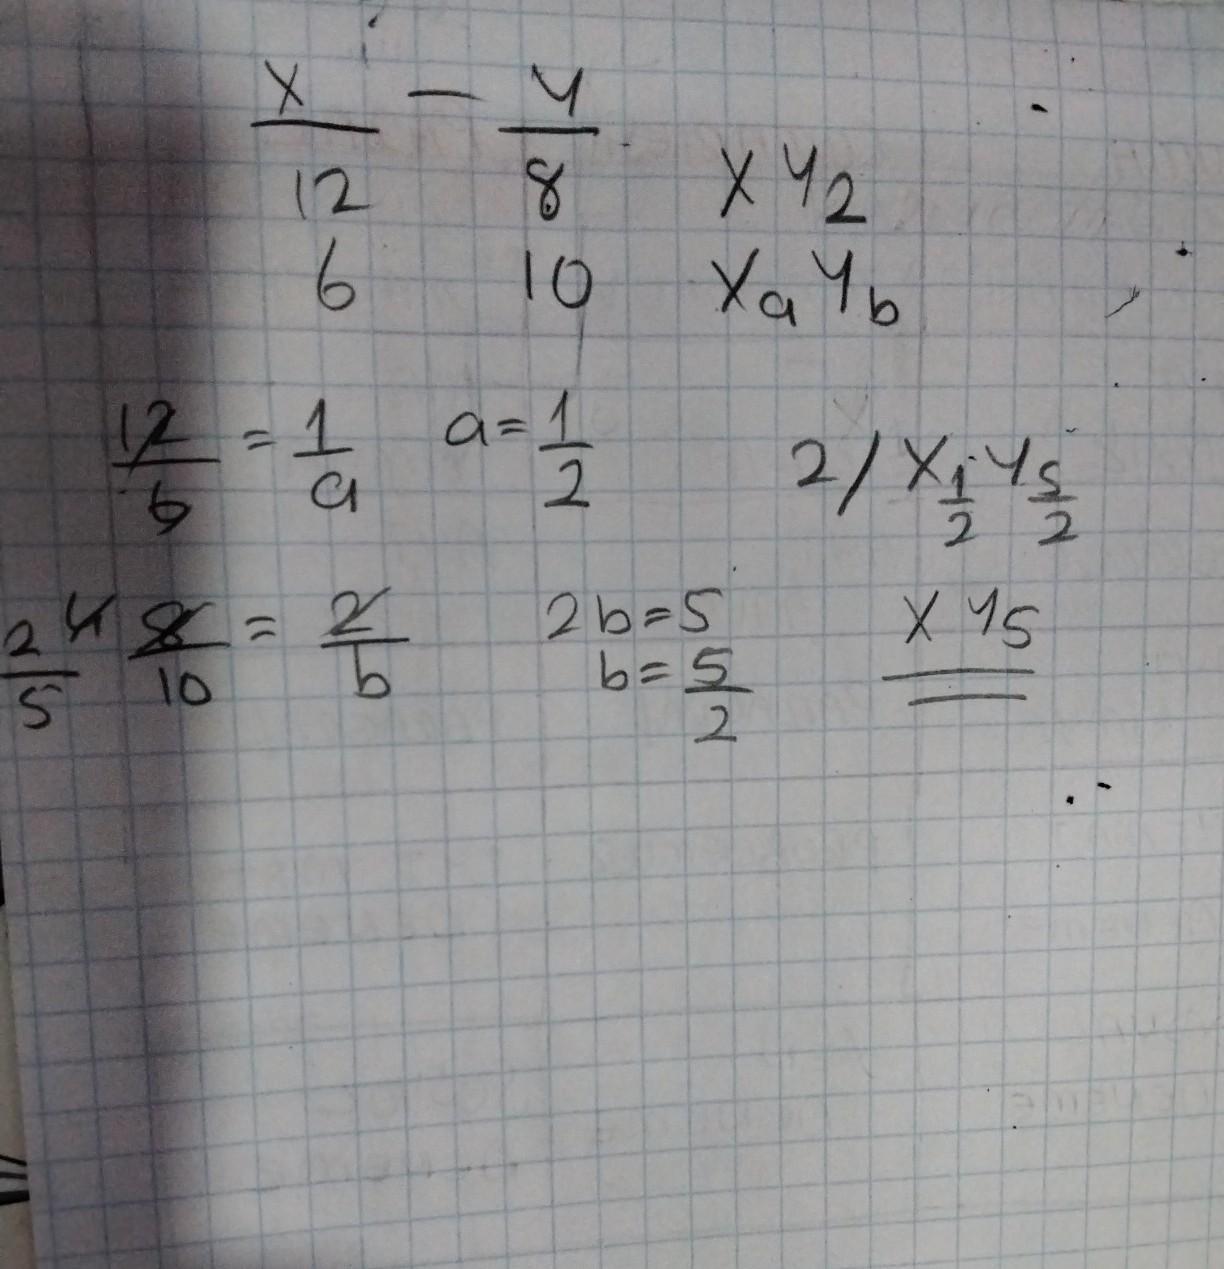 X — Y
12 8 XY2
6 10 XaYb
12/6 = 1/a a = 1/2 2/ X1/2 Y5/2
2/5 4 8/10 = 2/b 2b = 5 XY5
b = 5/2